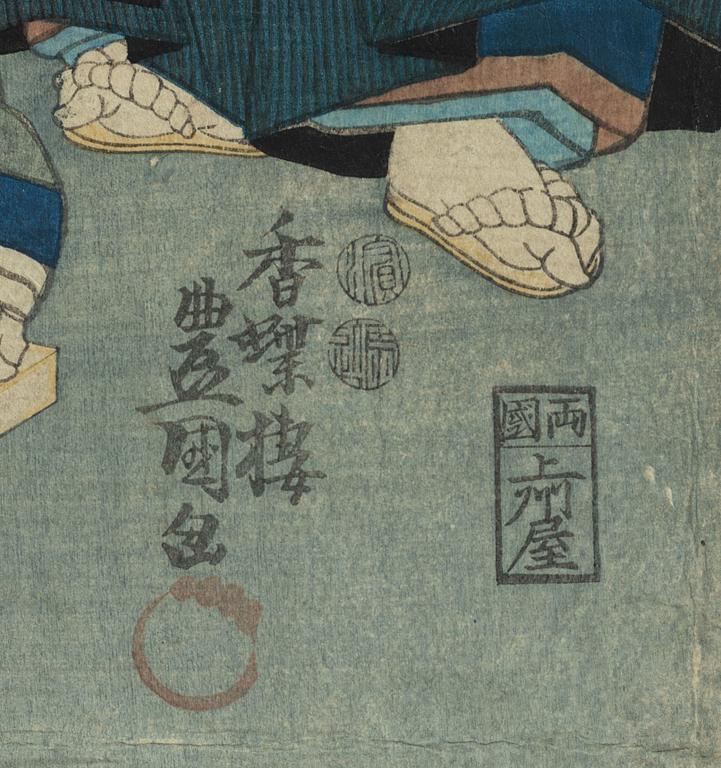 香蝶楼
豊國画
濱
両國
上州屋